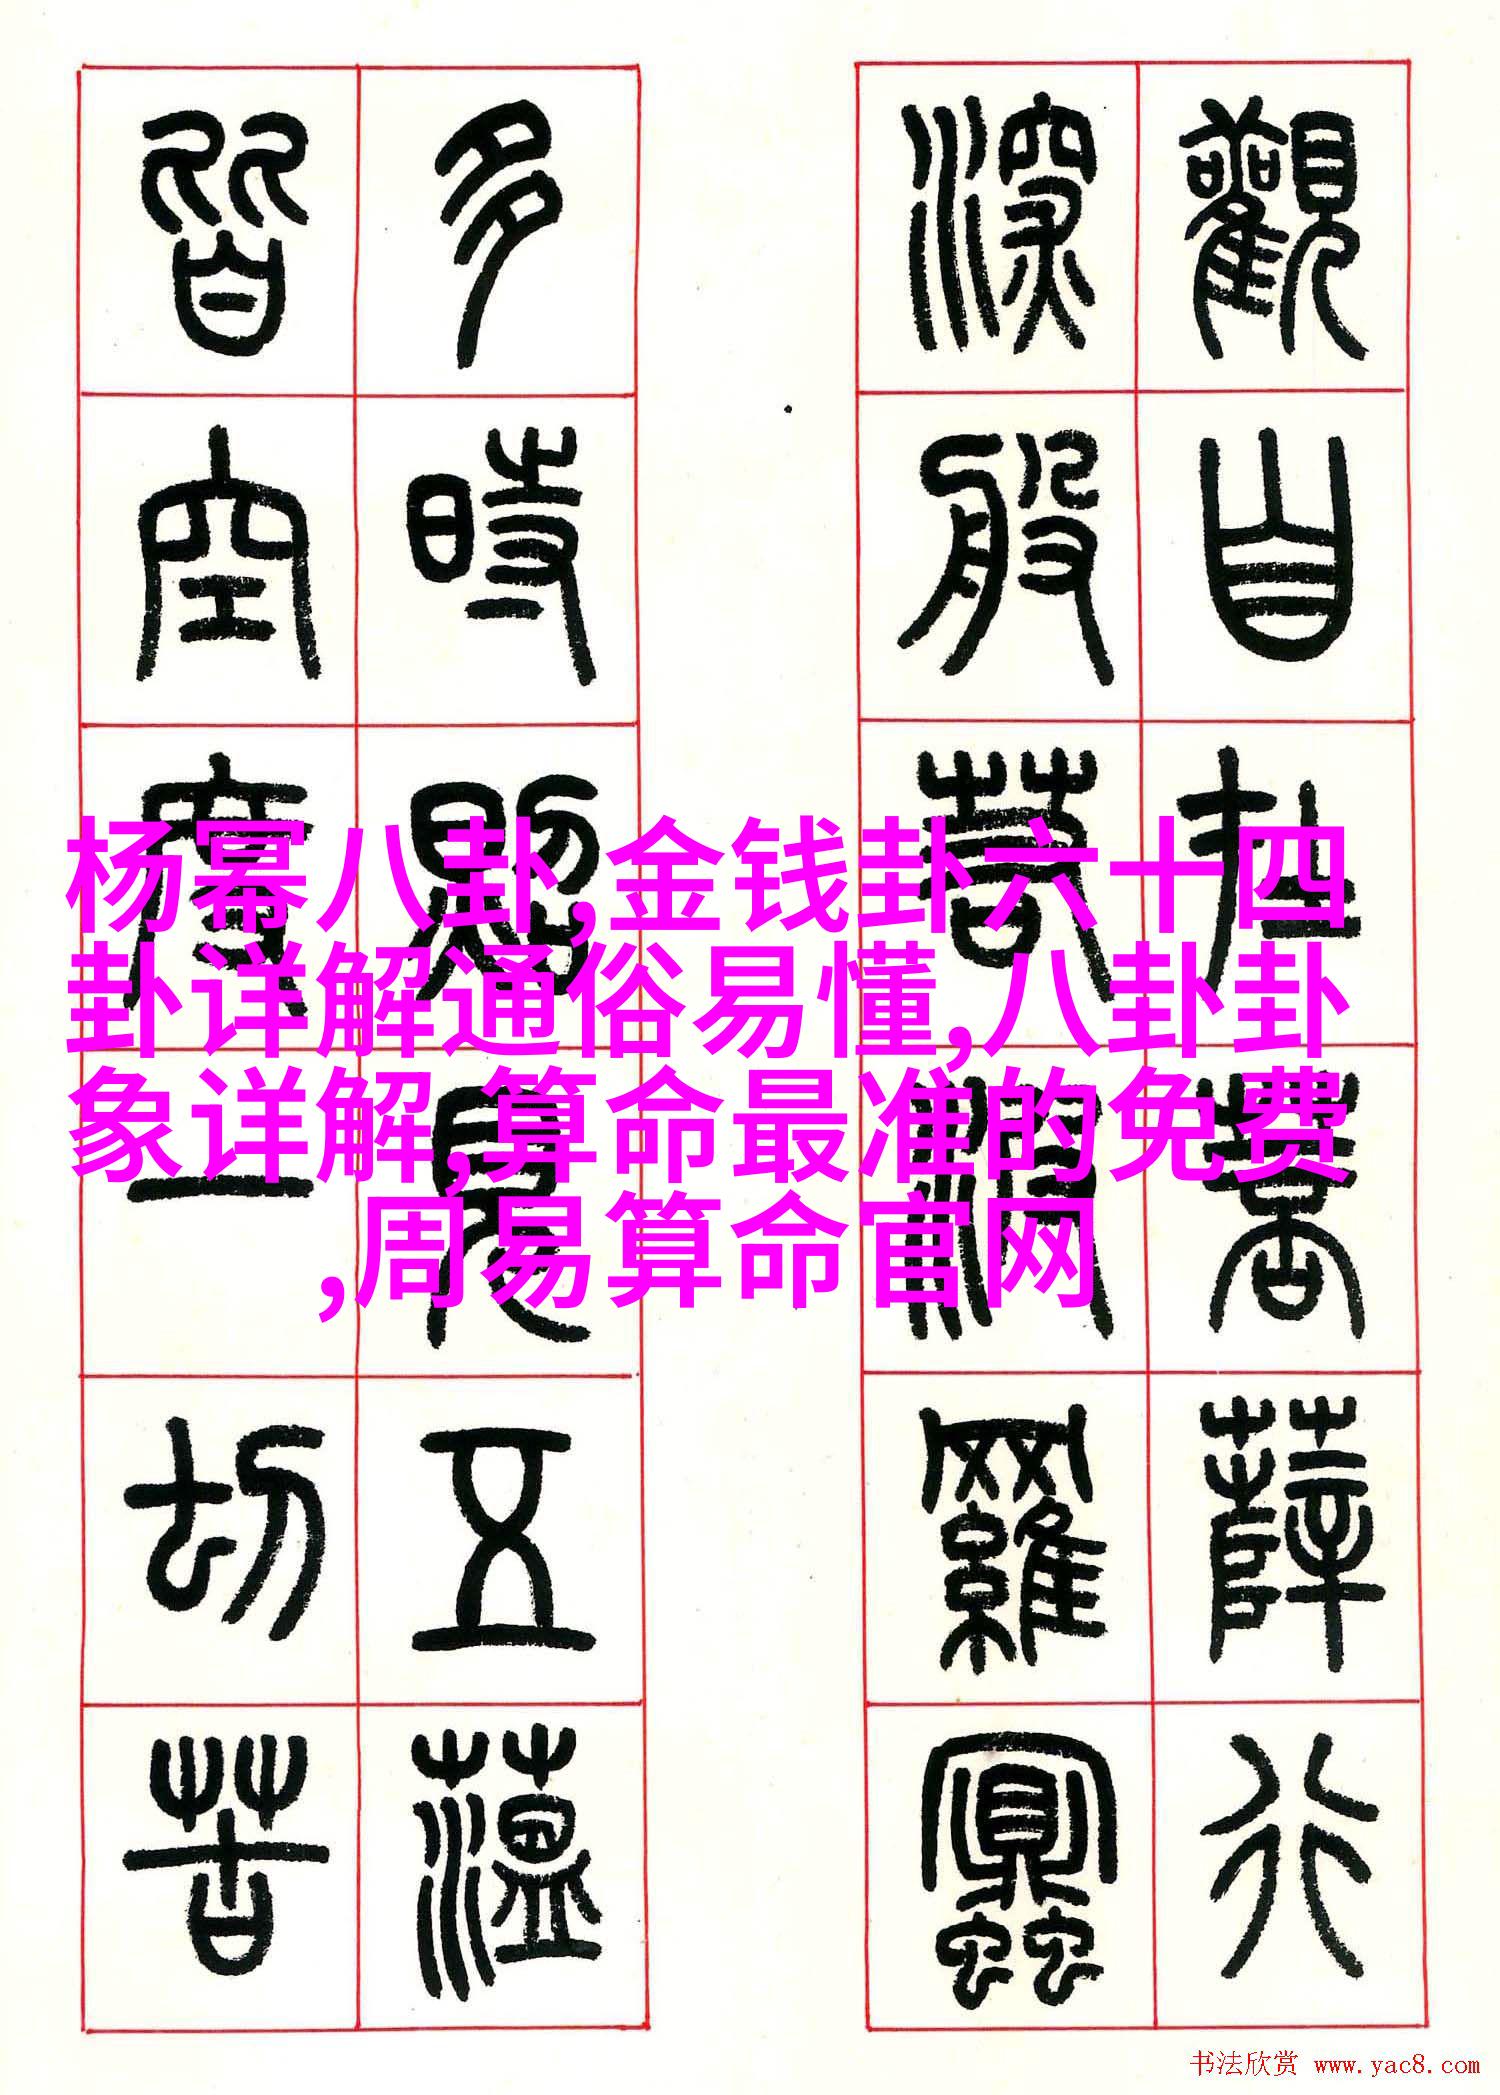 觀自在菩薩行
深般若波羅蜜
多時照見五蘊
皆空度一切苦
杨幂八卦,金钱卦六十四
卦详解通俗易懂,八卦卦
象详解,算命最准的免费
,周易算命官网
书法欣赏 www.yac8.com